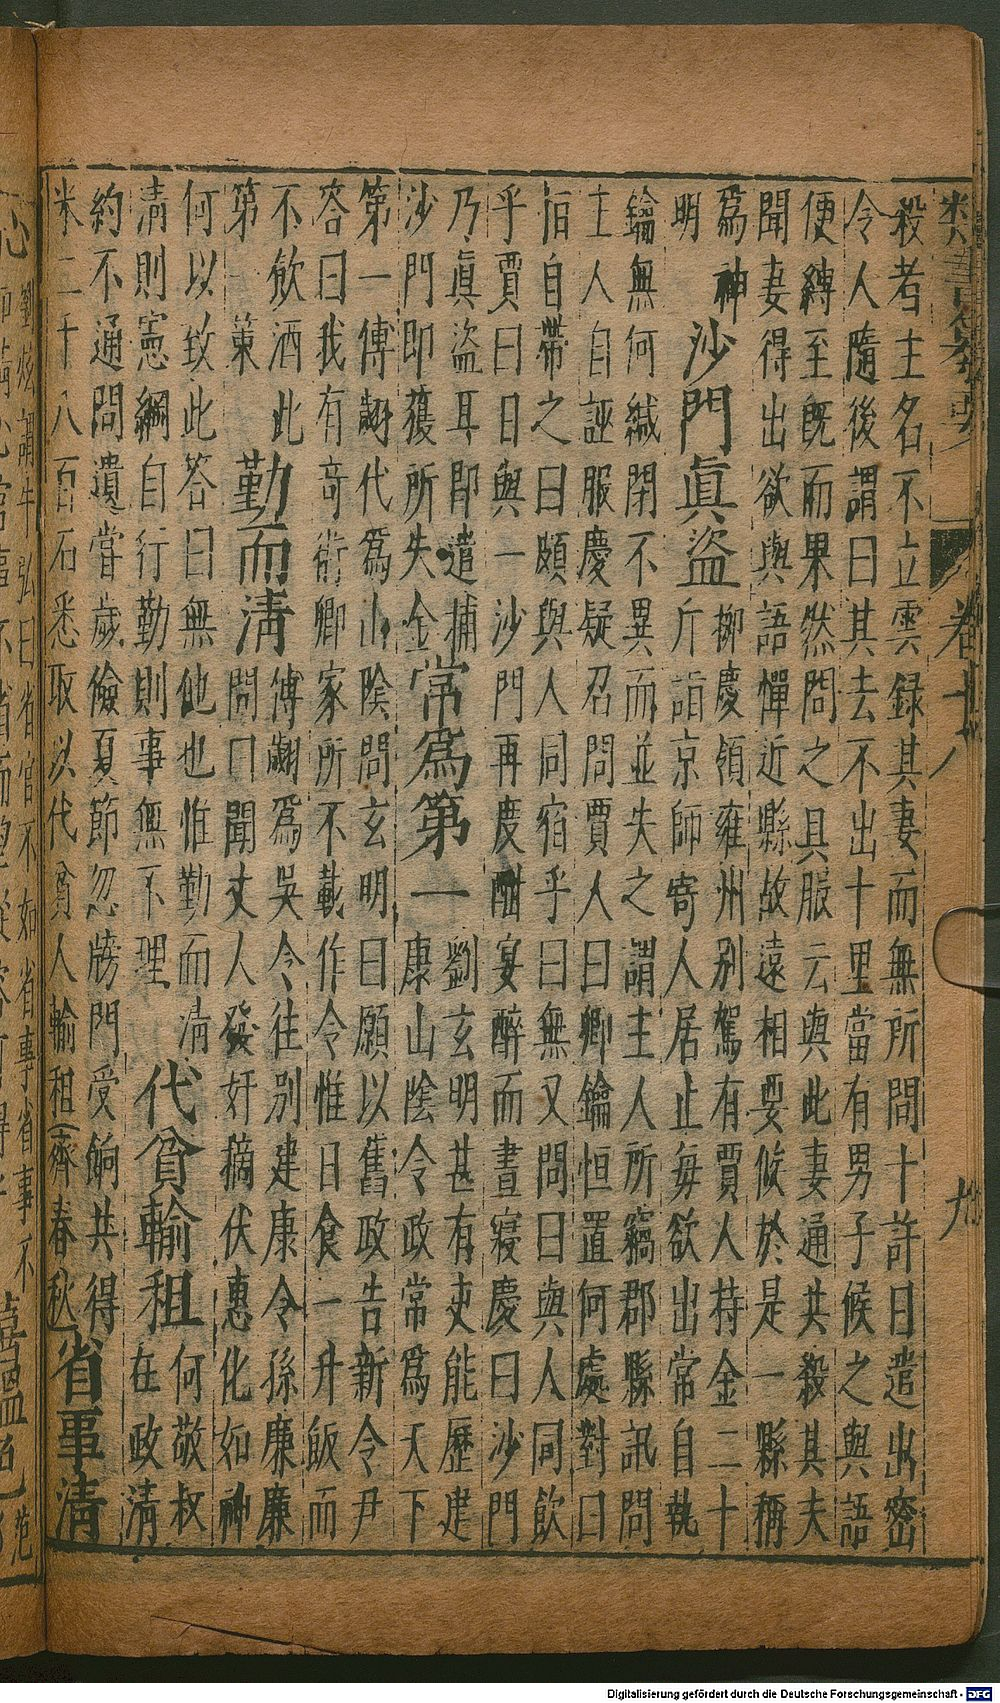 卷十八
九
殺者主名不立雲録其妻而無所問十許日遣出密
令人隨後謂曰其去不出十里當有男子候之與語
便縛至既而果然問之具服云與此妻通共殺其夫
聞妻得出欲與語憚近縣故遠相要候於是一縣稱
爲神
明
沙門眞盜
柳慶領雍州別駕有賈人持金二十
斤詣京師寄人居止每欲出常自執
鑰無何緘閉不異而並失之謂主人所竊郡縣訊問
主人自誣服慶疑召問賈人曰卿鑰恒置何處對曰
恒自帶之曰頗與人同宿乎曰無又問曰與人同飲
乎賈曰日與一沙門再度酣宴醉而晝寢慶曰沙門
乃眞盜耳即遣捕
沙門即獲所失金
常爲第一
劉玄明甚有吏能歷建
康山陰令政常爲天下
第一傅翽代爲山陰問玄明曰願以舊政告新令尹
答曰我有奇術卿家所不載作令惟日食一升飯而
不飲酒此
第一策
勤而清
傅翽爲吳令往別建康令孫廉廉
問曰聞丈人發奸摘伏惠化如神
何以致此答曰無他也惟勤而清
清則憲綱自行勤則事無不理
代貧輸租
何敬叔
在政清
約不通問遺嘗歲儉夏節忽牓門受餉共得
米二千八百石悉取以代貧人輸租(齊春秋)
省事清
心
劉炫謂牛弘曰省官不如省事省事不
Digitalisierung gefördert durch die Deutsche Forschungsgemeinschaft - DFG